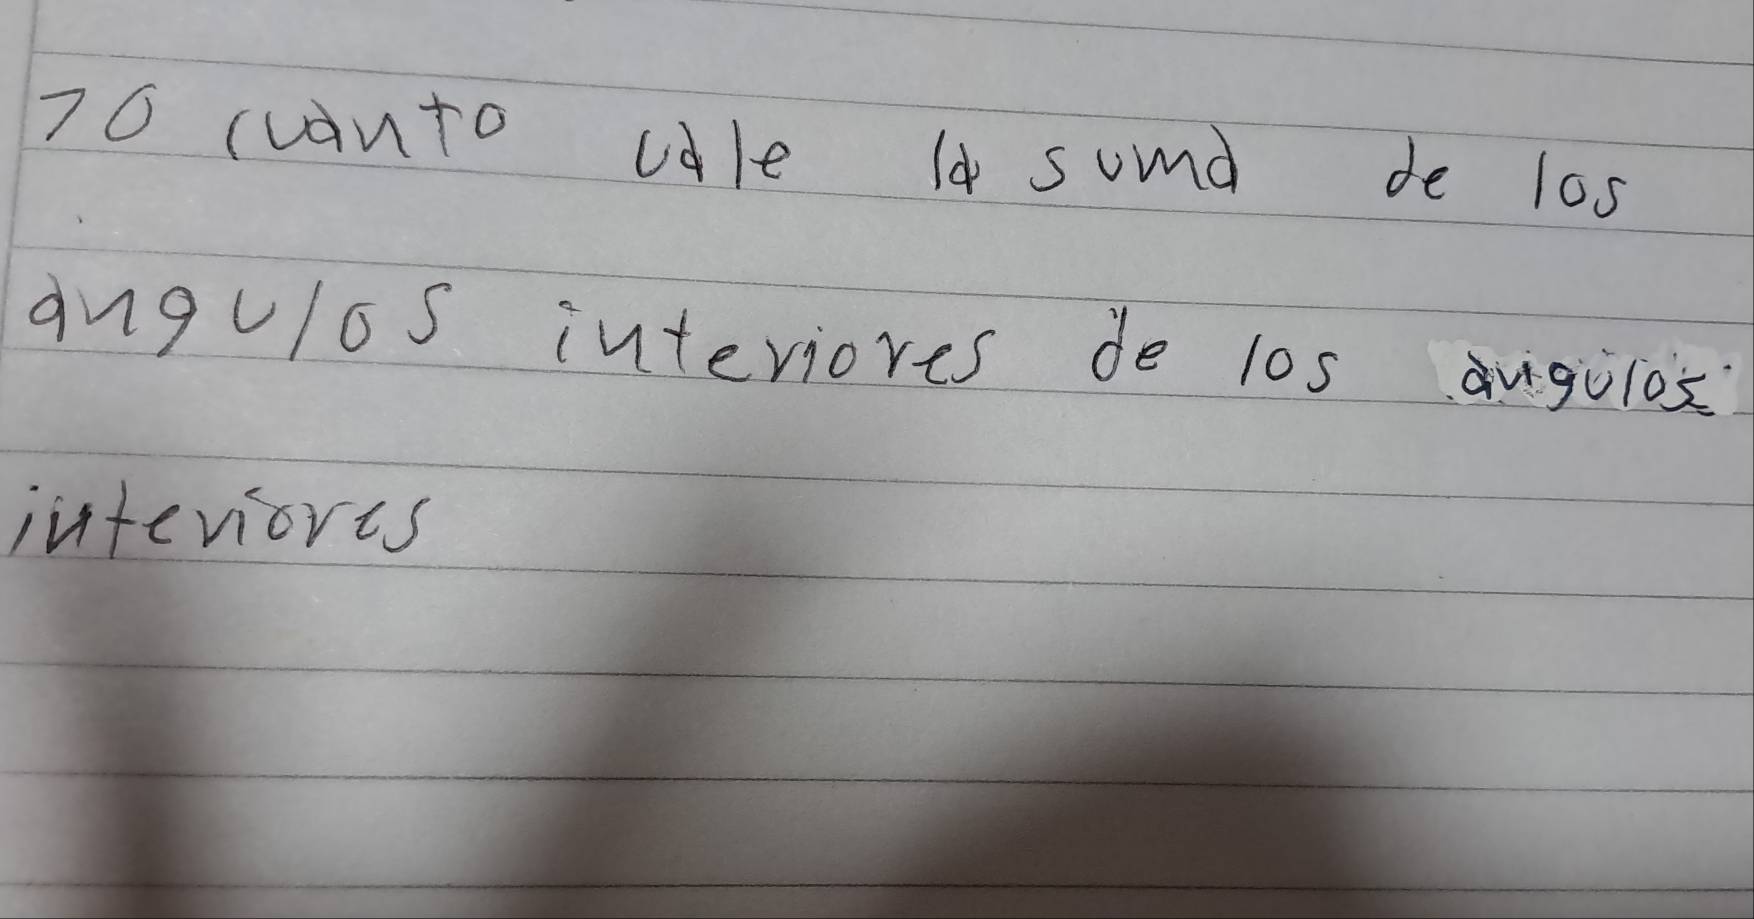 70 cuanto vale la suma de los
angulos interiores de los angulos
interiores